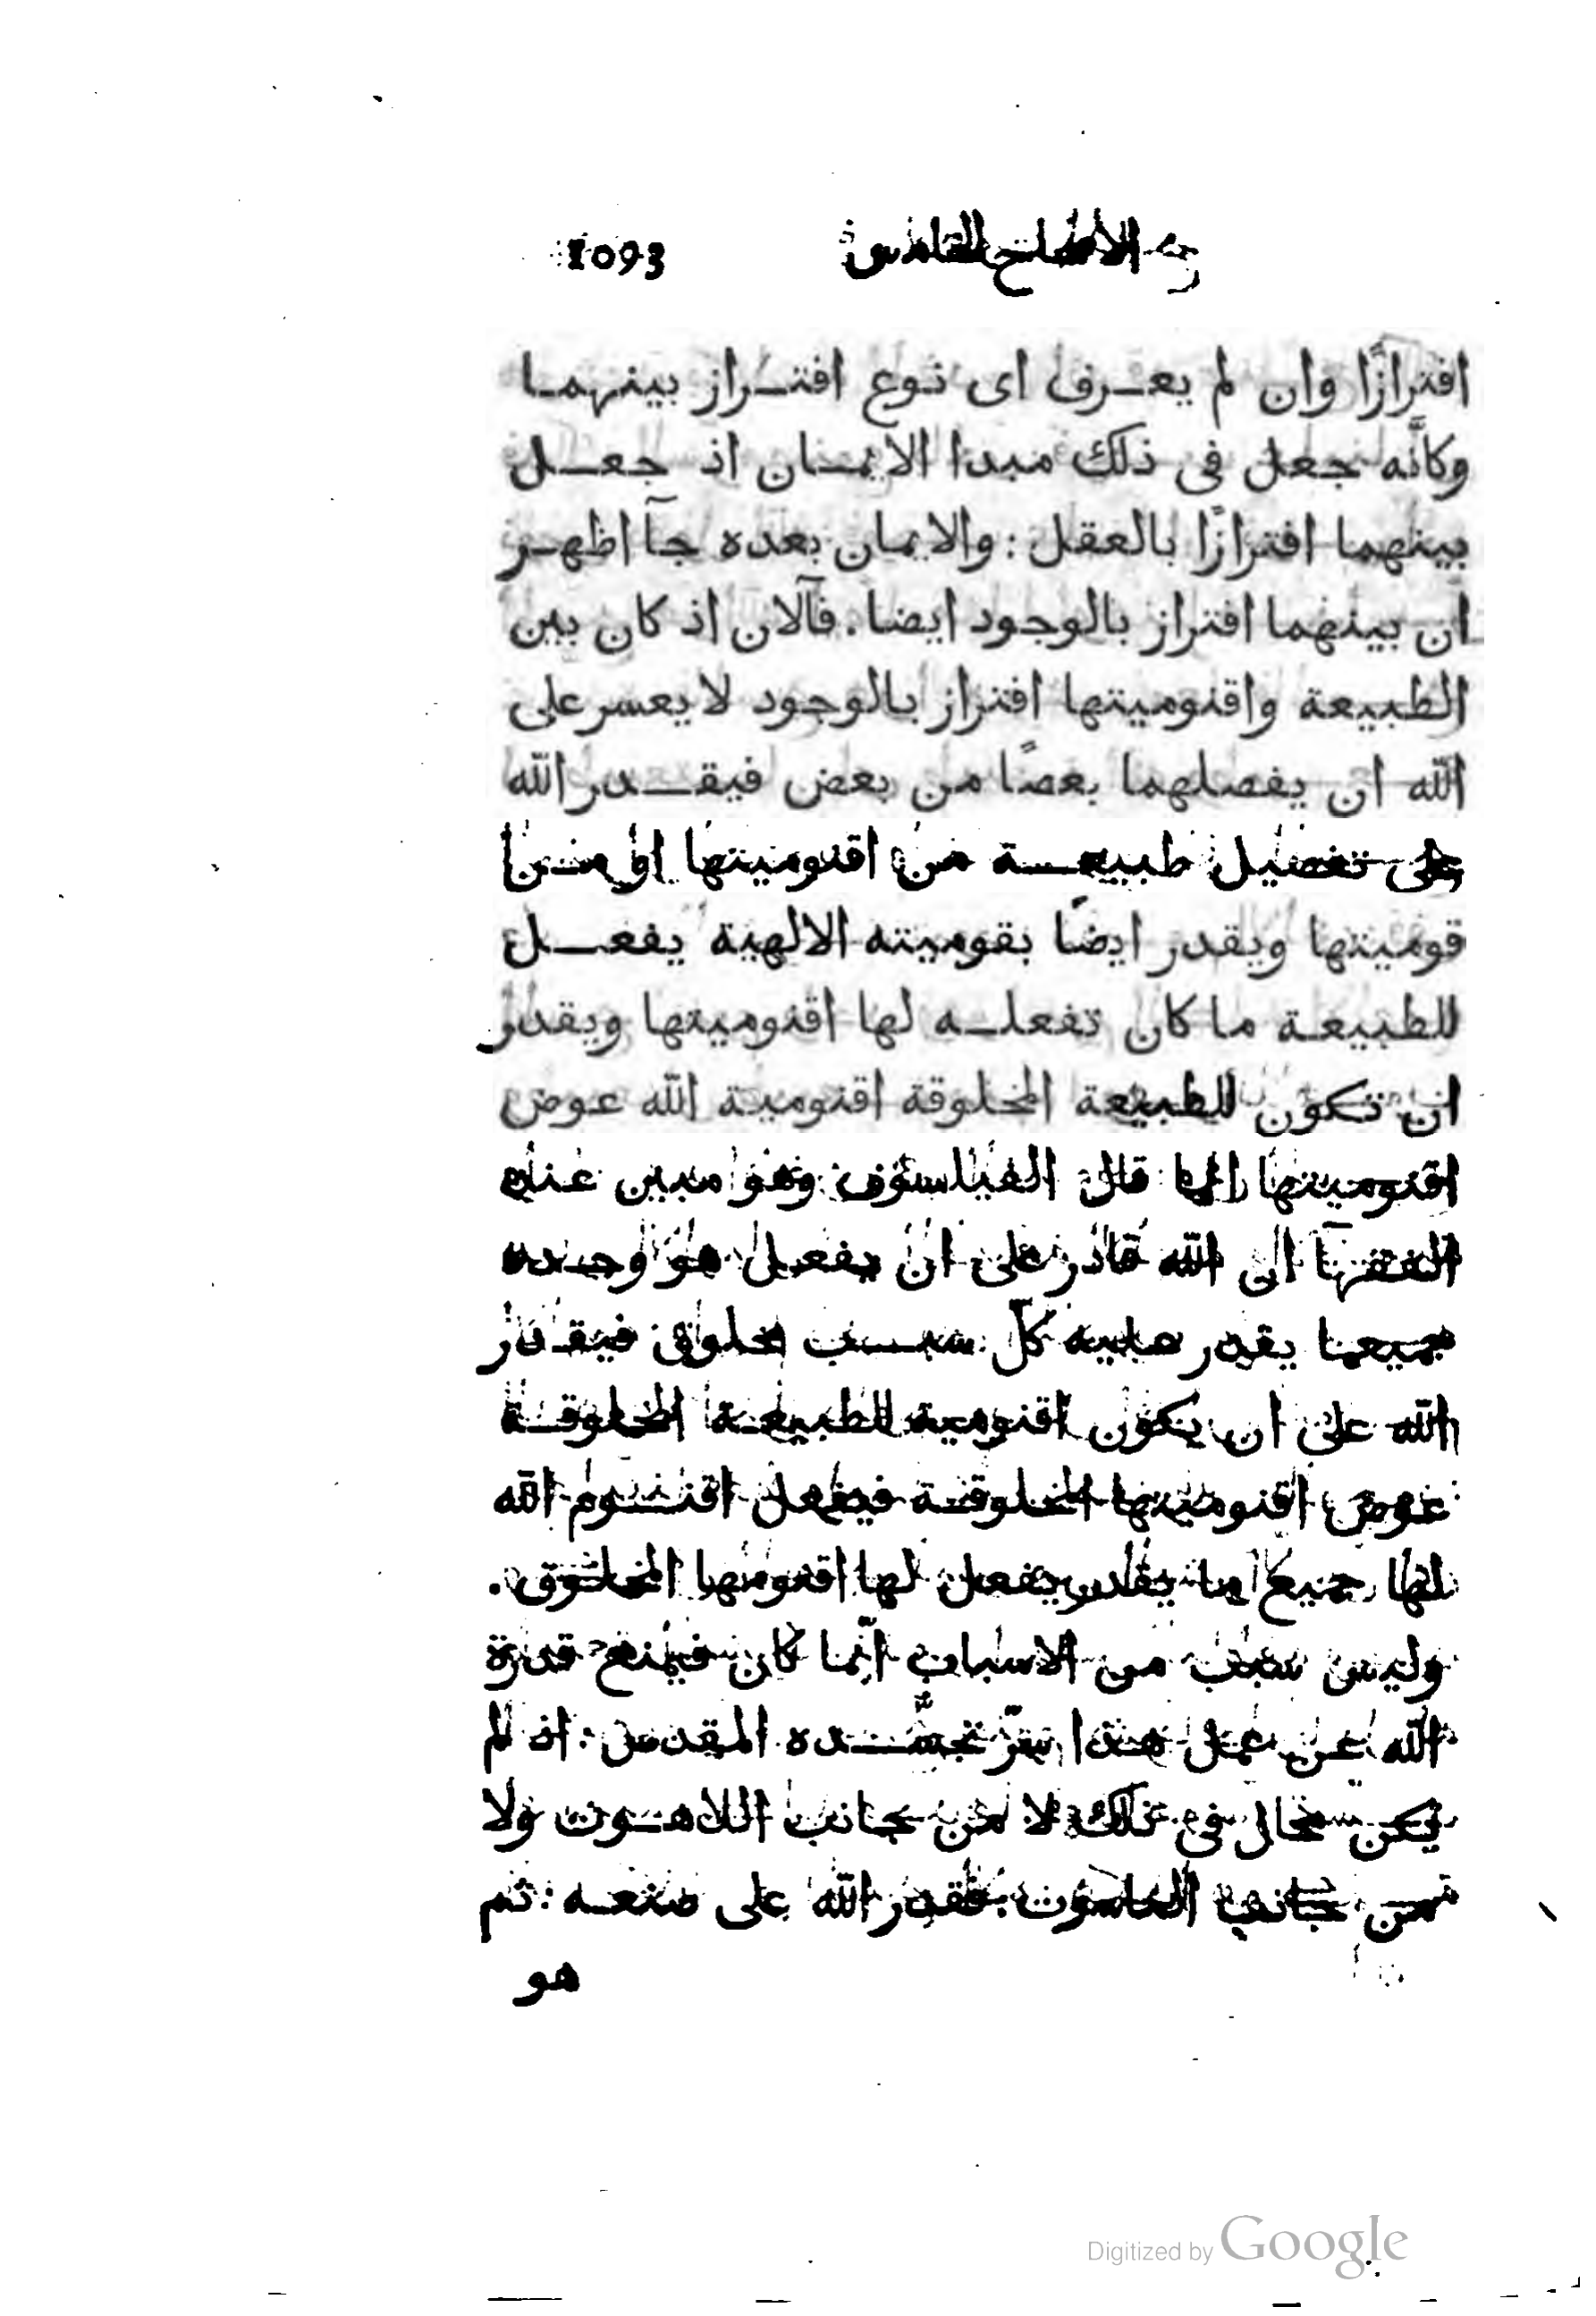 الاصحاح الخامس 1093
افترازًا وان لم يعرف اى نوع افتراز بينهما
وكانّه جعل فى ذلك مبدا الايمان اذ جعل
بينهما افترازًا بالعقل : والايمان بعده جآ اظهر
ان بينهما افتراز بالوجود ايضا . فآلان اذ كان بين
الطبيعة واقنوميتها افتراز بالوجود لا يعسر على
الله ان يفصلهما بعضًا من بعض فيقدر الله
على تفصيل طبيعة من اقنوميتها او من
قوميتها ويقدر ايضًا بقوميته الالهية يفعل
للطبيعة ما كان تفعله لها اقنوميتها ويقدر
ان تكون للطبيعة المخلوقة اقنومية الله عوض
اقنوميتها لما قال الفيلسوف وهو مبين عند
الفقهآ ان الله قادر على ان يفعل هو وحده
جميعما يقدر عليه كلّ سبب مخلوق فيقدر
الله على ان يكون اقنومية للطبيعة المخلوقة
عوض اقنوميتها المخلوقة فيفعل اقنوم الله
لها جميع ما يقدر يفعل لها اقنومها المخلوق .
وليس سبب من الاسباب انّما كان فيمنع قدرة
الله عن عمل هذا سرّ تجسّده المقدس : اذ لم
يكن محال فى ذلك لا من جانب اللاهوت ولا
من جانب الناسوت . فقدر الله على صنعه : ثم
هو
Digitized by Google